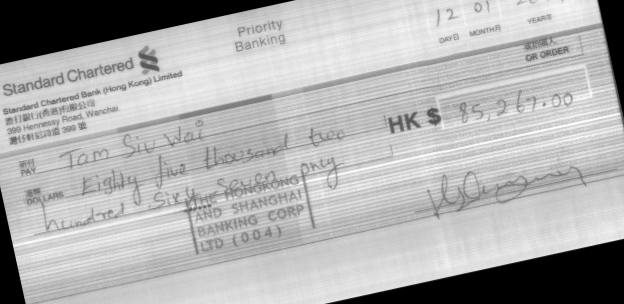 Priority
Banking
12 01
DAY日 MONTH月 YEAR年
Standard Chartered
Standard Chartered Bank (Hong Kong) Limited
渣打銀行(香港)有限公司
399 Hennessy Road, Wanchai
灣仔軒尼詩道 399 號
或持票人
OR ORDER
祈付
PAY Tam Siu Wai
HK $ 85,267.00
港幣
DOLLARS Eighty five thousand two
hundred sixty seven only
THE HONGKONG
AND SHANGHAI
BANKING CORP
LTD (004)